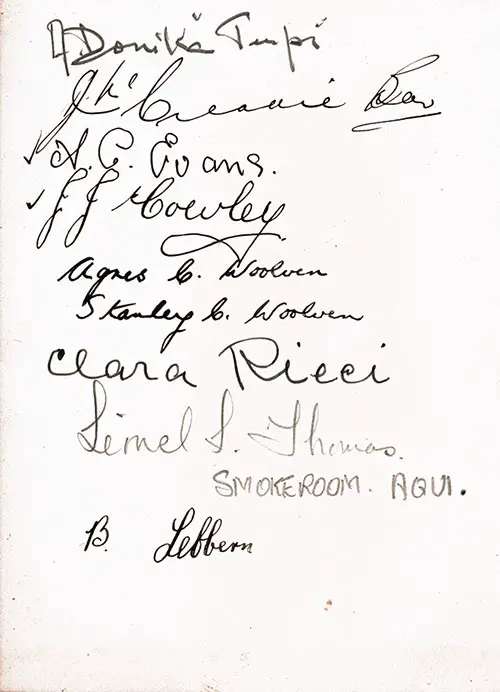 J. McCreadie Bar
✓ A. C. Evans.
✓ J J Cowley
Agnes C. Woolven
Stanley C. Woolven
Clara Ricci
Lionel S. Thomas.
SMOKEROOM. AQUI.
B. Lebbern